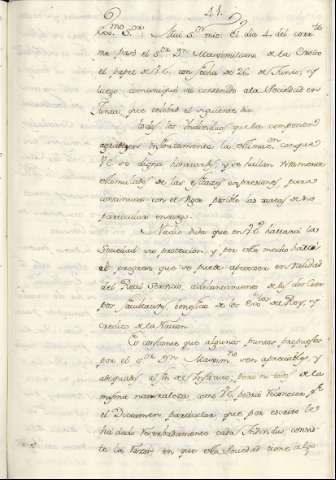 41.
Exmo. Sor.: Mui Sor. mio: El dia 4 del corrte.
me pasó el Sor. Dn. Maximiliano de la Croix
el papel de V.E. con fecha de 26 de Junio, y
luego comuniqué su contenido á la Sociedad en
Junta, que celebró el siguiente dia.
Todos los Individuos que la componen
agradecen infinitamente la estimaon. conque
V.E. se digna honrarlos, y se hallan sumamente
estimulados de las eficazes expresiones para
continuar con el mayor posible las tareas de su
particular encargo.
Nadie duda que en V.E. hallará la
Sociedad su proteccion, y por este medio hará
el progreso que se puede apetecer en utilidad
del Real Servicio, adelantamiento de los dos Cuer
pos facultativos, beneficio de los Exercitos del Rey, y
credito de la Nacion.
Es constante que algunos puntos propuestos
por el Sor. Dn. Maximno. son apreciables, y
adequados al fin de
misma naturaleza, como V.E. podrá reconocer pr.
el Dictamen particular que por escrito le
ha dado separadamente cada Individuo, consis
te la
en que esta Sociedad tiene algu